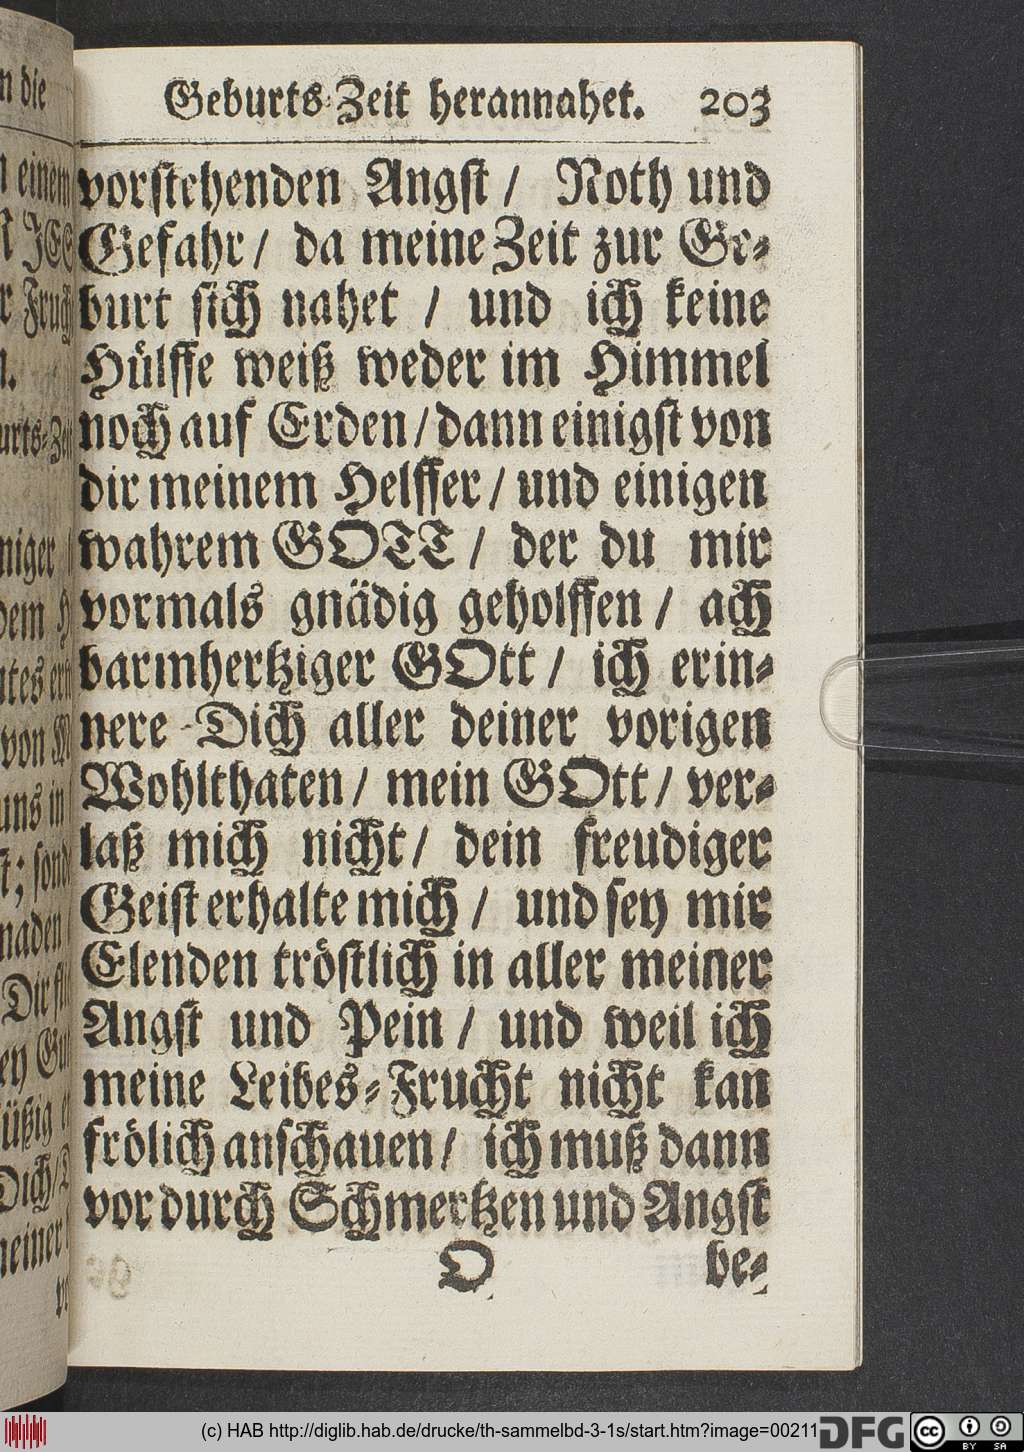 Geburts-Zeit herannahet. 203
vorstehenden Angst / Noth und
Gefahr / da meine Zeit zur Ge-
burt sich nahet / und ich keine
Hülffe weiß weder im Himmel
noch auf Erden / dann einigst von
dir meinem Helffer / und einigen
wahrem GOTT / der du mir
vormals gnädig geholffen / ach
barmhertziger GOtt / ich erin-
nere Dich aller deiner vorigen
Wohlthaten / mein GOtt / ver-
laß mich nicht / dein freudiger
Geist erhalte mich / und sey mir
Elenden tröstlich in aller meiner
Angst und Pein / und weil ich
meine Leibes-Frucht nicht kan
frölich anschauen / ich muß dann
vor durch Schmertzen und Angst
O be-
n die
einem
r Fruch
urts-Zeit
niger
dem
von
uns in
naden
Dir
Dich /
(c) HAB http://diglib.hab.de/drucke/th-sammelbd-3-1s/start.htm?image=00211
DFG
cc BY SA